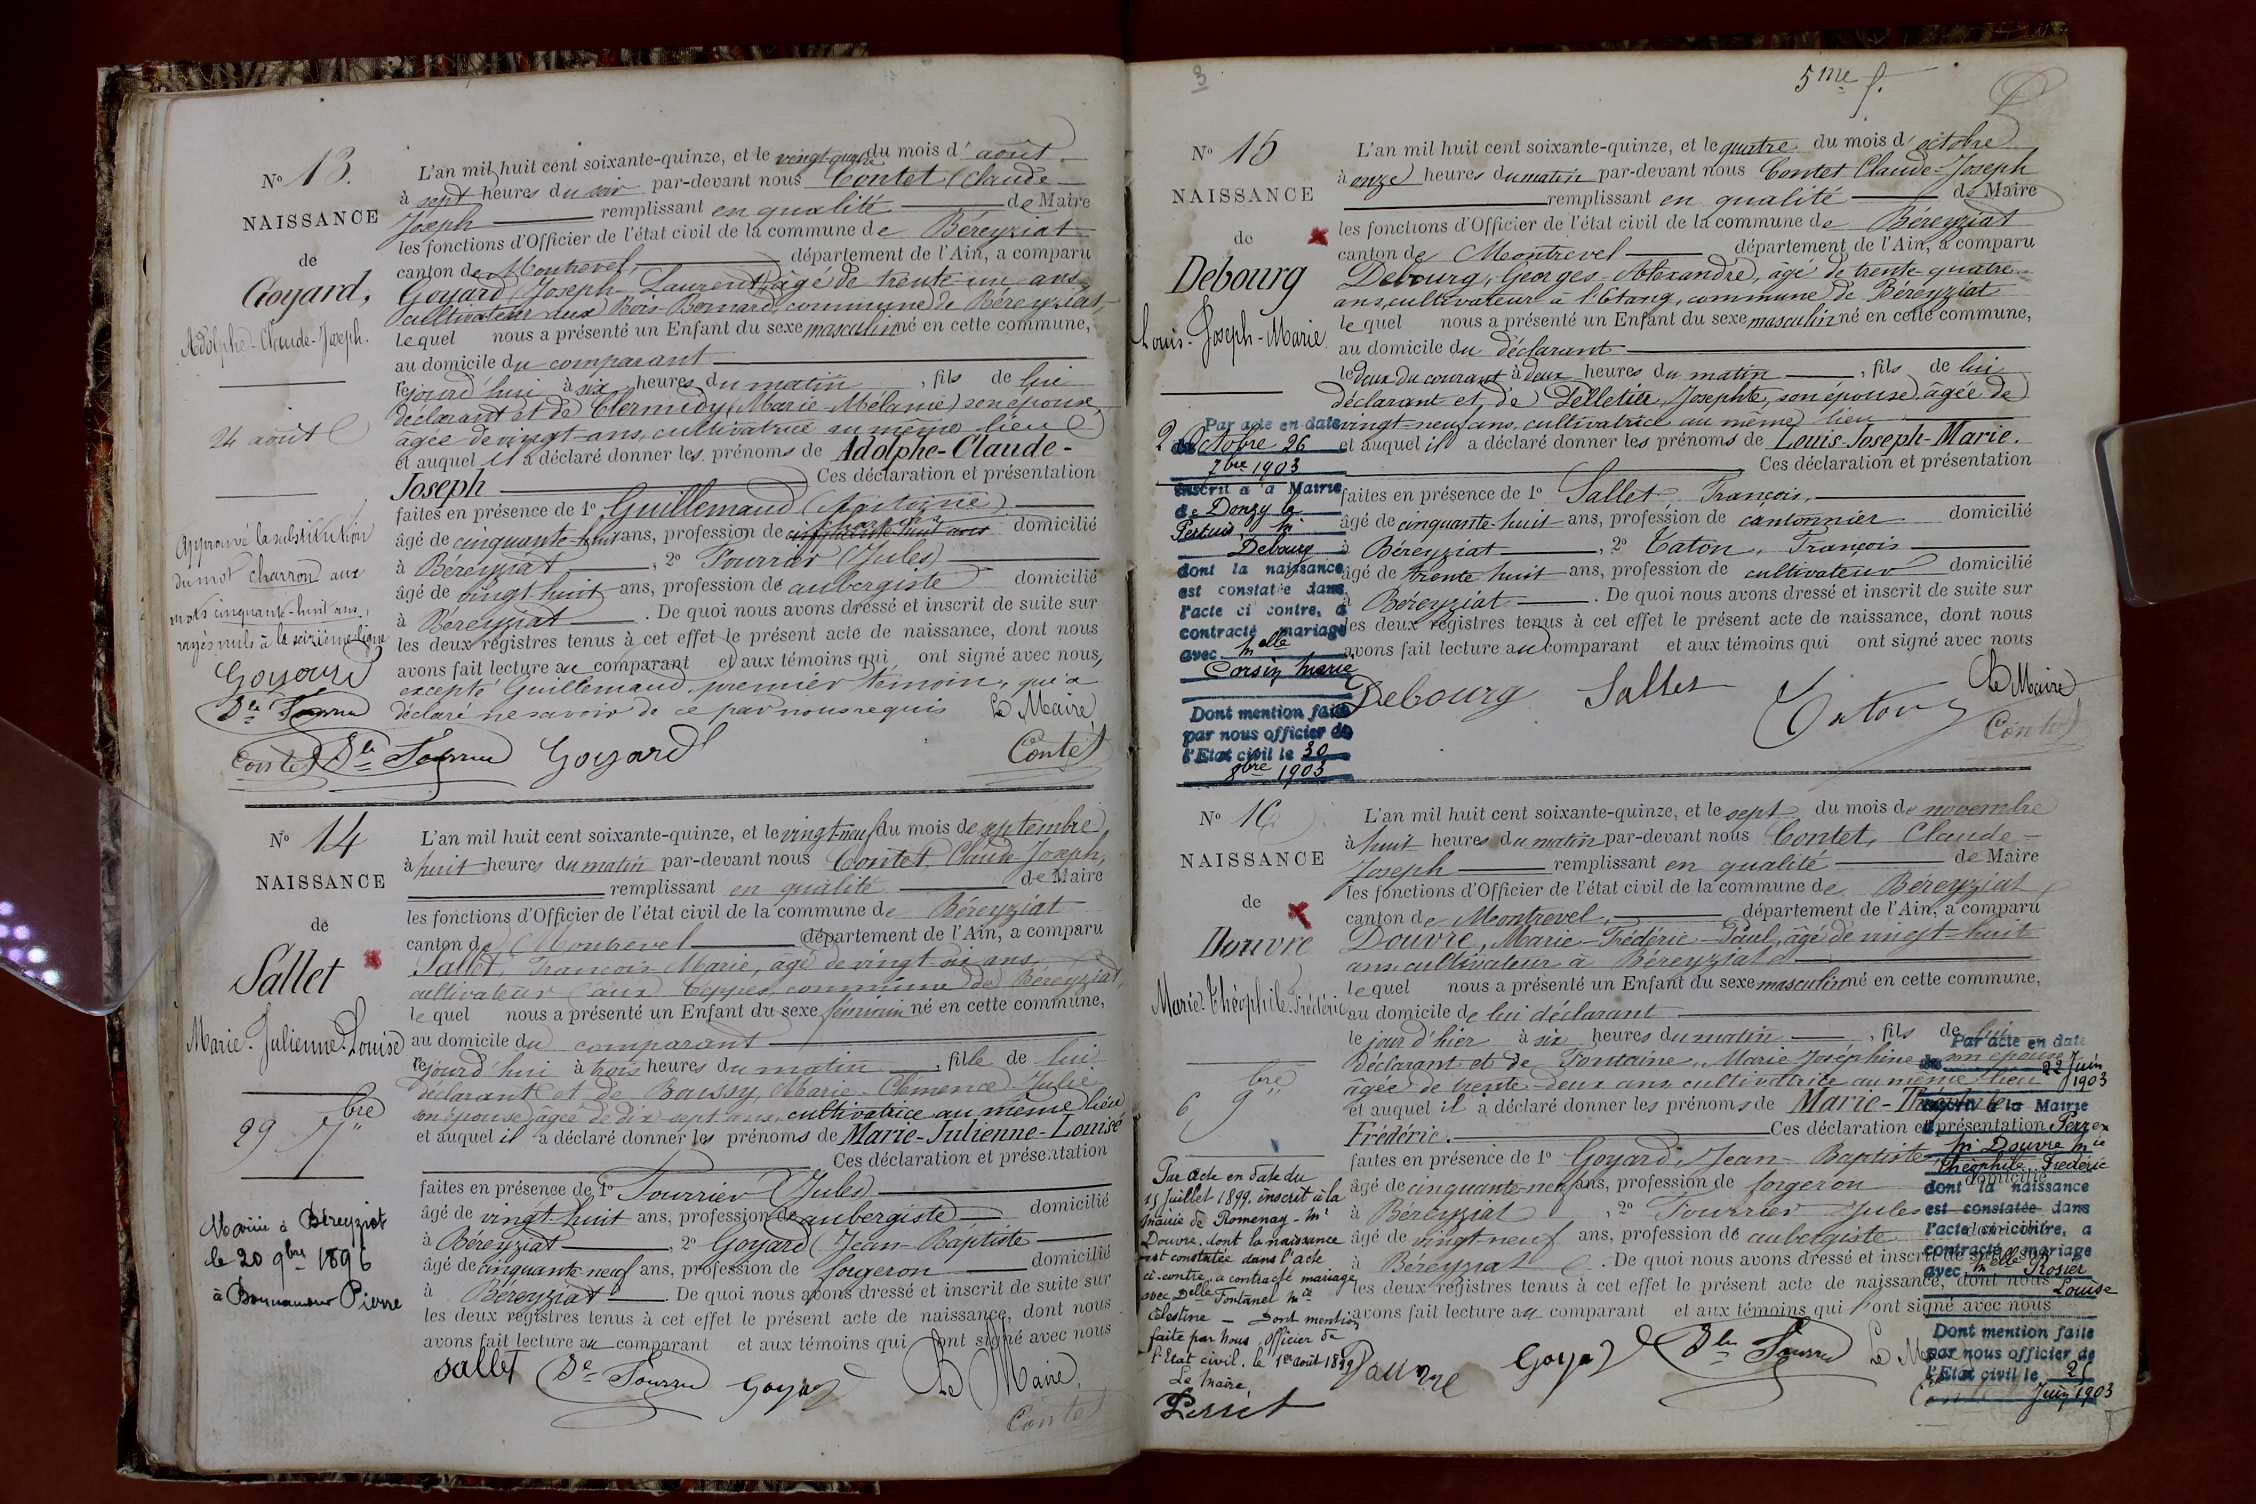 Nº 13.
NAISSANCE
de
Goyard,
Adolphe-Claude-Joseph.
24 août
Approuvé la substitution
du mot charron aux
mots cinquante-huit ans,
rayés nuls à la seizième ligne
Goyard
Contet
L'an mil huit cent soixante-quinze, et le vingt quatre du mois d'août
à sept heures du soir par-devant nous Contet (Claude-
Joseph remplissant en qualité de Maire
les fonctions d'Officier de l'état civil de la commune de Béreyziat
canton de Montrevel, département de l'Ain, a comparu
Goyard (Joseph-Laurent) âgé de trente-un ans
cultivateur aux Bois-Bernard, commune de Béreyziat,
lequel nous a présenté un Enfant du sexe masculin né en cette commune,
au domicile du comparant
cejourd'hui à six heures du matin, fils de lui
déclarant et de Clermidy (Marie-Mélanie) son épouse,
âgée de vingt-ans, cultivatrice au même lieu
et auquel il a déclaré donner les prénoms de Adolphe-Claude-
Joseph Ces déclaration et présentation
faites en présence de 1º Guillemaud (Antoine)
charron
âgé de cinquante-huit ans, profession de cinquante huit ans domicilié
à Béreyziat, 2º Fourrier (Jules)
âgé de vingt huit ans, profession de aubergiste domicilié
à Béreyziat. De quoi nous avons dressé et inscrit de suite sur
les deux registres tenus à cet effet le présent acte de naissance, dont nous
avons fait lecture au comparant et aux témoins qui ont signé avec nous,
excepté Guillemaud, premier témoin, qui a
déclaré ne savoir de ce par nous requis Le Maire
Goyard Contet
Nº 14
NAISSANCE
de
Sallet
Marie-Julienne-Louise
29 7bre
Marié à Béreyziat
le 20 9bre 1896
à Bonnamour Pierre
L'an mil huit cent soixante-quinze, et le vingt-neuf du mois de septembre
à huit heures du matin par-devant nous Contet, Claude Joseph,
remplissant en qualité de Maire
les fonctions d'Officier de l'état civil de la commune de Béreyziat
canton de Montrevel département de l'Ain, a comparu
Sallet, François Marie, âgé de vingt six ans,
cultivateur aux Teppes, commune de Béreyziat,
lequel nous a présenté un Enfant du sexe féminin né en cette commune,
au domicile du comparant
cejourd'hui à trois heures du matin, fille de lui
déclarant et de Boussy, Marie-Clémence Julie
son épouse, âgée de dix sept ans, cultivatrice au même lieu
et auquel il a déclaré donner les prénoms de Marie-Julienne-Louise
Ces déclaration et présentation
faites en présence de 1º Fourrier (Jules)
âgé de vingt-huit ans, profession de aubergiste domicilié
à Béreyziat, 2º Goyard (Jean-Baptiste
âgé de cinquante-neuf ans, profession de forgeron domicilié
à Béreyziat. De quoi nous avons dressé et inscrit de suite sur
les deux registres tenus à cet effet le présent acte de naissance, dont nous
avons fait lecture au comparant et aux témoins qui ont signé avec nous
Sallet Goyard Le Maire,
Contet
3
5me f.
Nº 15
NAISSANCE
de
Debourg
Louis-Joseph-Marie
2 Octobre
Par acte en date
du 26
7bre 1903
inscrit à la Mairie
de Donzy le
Pertuis, Mr
Debourg
dont la naissance
est constatée dans
l'acte ci contre, a
contracté mariage
avec Melle
Corsin Marie
Dont mention faite
par nous officier de
l'Etat civil le 30
8bre 1903
L'an mil huit cent soixante-quinze, et le quatre du mois d'octobre
à onze heures du matin par-devant nous Contet Claude-Joseph
remplissant en qualité de Maire
les fonctions d'Officier de l'état civil de la commune de Béreyziat
canton de Montrevel département de l'Ain, a comparu
Debourg, Georges-Alexandre, âgé de trente-quatre
ans, cultivateur à l'Etang, commune de Béreyziat
lequel nous a présenté un Enfant du sexe masculin né en cette commune,
au domicile du déclarant
le deux du courant à deux heures du matin, fils de lui
déclarant et de Pelletier, Josephte, son épouse, âgée de
vingt-neuf ans, cultivatrice au même lieu
et auquel il a déclaré donner les prénoms de Louis-Joseph-Marie.
Ces déclaration et présentation
faites en présence de 1º Sallet François,
âgé de cinquante-huit ans, profession de cantonnier domicilié
à Béreyziat, 2º Caton, François
âgé de trente huit ans, profession de cultivateur domicilié
à Béreyziat. De quoi nous avons dressé et inscrit de suite sur
les deux registres tenus à cet effet le présent acte de naissance, dont nous
avons fait lecture au comparant et aux témoins qui ont signé avec nous
Debourg Sallet Caton Le Maire
Contet
Nº 16
NAISSANCE
de
Douvre
Marie-Théophile-Frédéric
6 9bre
Par acte en date du
15 juillet 1899, inscrit à la
mairie de Romenay - Mr
Douvre, dont la naissance
est constatée dans l'acte
ci-contre, a contracté mariage
avec Delle Fontanel Mie
Célestine - Dont mention
faite par nous, officier de
l'Etat civil, le 1er août 1899
Le Maire,
Perret
L'an mil huit cent soixante-quinze, et le sept du mois de novembre
à huit heures du matin par-devant nous Contet, Claude-
Joseph remplissant en qualité de Maire
les fonctions d'Officier de l'état civil de la commune de Béreyziat
canton de Montrevel, département de l'Ain, a comparu
Douvre, Marie-Frédéric-Paul, âgé de vingt-huit
ans, cultivateur à Béreyziat
lequel nous a présenté un Enfant du sexe masculin né en cette commune,
au domicile de lui déclarant
le jour d'hier à six heures du matin, fils de lui
déclarant et de Fontaine, Marie Joséphine son épouse
âgée de trente-deux ans cultivatrice au même lieu
et auquel il a déclaré donner les prénoms de Marie-Théophile
Frédéric. Ces déclaration et présentation
faites en présence de 1º Goyard, Jean-Baptiste
âgé de cinquante-neuf ans, profession de forgeron domicilié
à Béreyziat, 2º Fourrier Jules
âgé de vingt neuf ans, profession de aubergiste domicilié
à Béreyziat. De quoi nous avons dressé et inscrit de suite sur
les deux registres tenus à cet effet le présent acte de naissance, dont nous
avons fait lecture au comparant et aux témoins qui ont signé avec nous
Douvre Goyard Le Maire
Contet
Par acte en date
du 22 Juin
1903
inscrit à la Mairie
Perrex
Mr Douvre Mie
Théophile Frédéric
dont la naissance
est constatée dans
l'acte ci contre, a
contracté mariage
avec Melle Rosier
Louise
Dont mention faite
par nous officier de
l'Etat civil le 25
Juin 1903